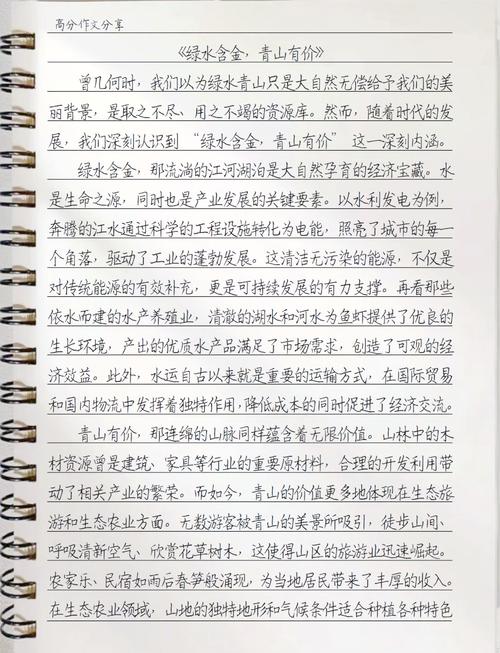 高分作文分享
《绿水含金，青山有价》
曾几何时，我们以为绿水青山只是大自然无偿给予我们的美
丽背景，是取之不尽、用之不竭的资源库。然而，随着时代的发
展，我们深刻认识到“绿水含金，青山有价”这一深刻内涵。
绿水含金，那流淌的江河湖泊是大自然孕育的经济宝藏。水
是生命之源，同时也是产业发展的关键要素。以水利发电为例，
奔腾的江水通过科学的工程设施转化为电能，照亮了城市的每一
个角落，驱动了工业的蓬勃发展。这清洁无污染的能源，不仅是
对传统能源的有效补充，更是可持续发展的有力支撑。再看那些
依水而建的水产养殖业，清澈的湖水和河水为鱼虾提供了优良的
生长环境，产出的优质水产品满足了市场需求，创造了可观的经
济效益。此外，水运自古以来就是重要的运输方式，在国际贸易
和国内物流中发挥着独特作用，降低成本的同时促进了经济交流。
青山有价，那连绵的山脉同样蕴含着无限价值。山林中的木
材资源曾是建筑、家具等行业的重要原材料，合理的开发利用带
动了相关产业的繁荣。而如今，青山的价值更多地体现在生态旅
游和生态农业方面。无数游客被青山的美景所吸引，徒步山间、
呼吸清新空气、欣赏花草树木，这使得山区的旅游业迅速崛起。
农家乐、民宿如雨后春笋般涌现，为当地居民带来了丰厚的收入。
在生态农业领域，山地的独特地形和气候条件适合种植各种特色